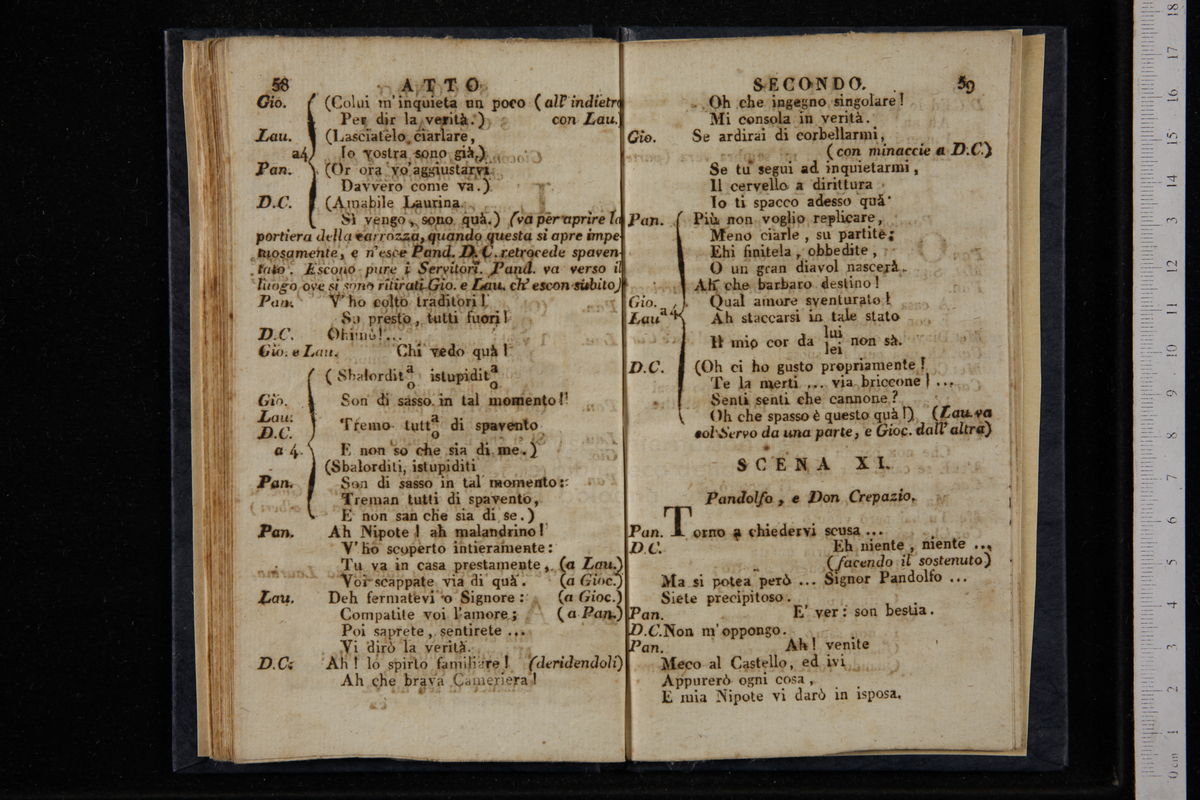 58 ATTO
Gio. (Colui m'inquieta un poco (all' indietro
Per dir la verità.) con Lau.)
Lau. (Lasciatelo ciarlare,
a4 Io vostra sono già,)
Pan. (Or ora vo'aggiustarvi
Davvero come va.)
D.C. (Amabile Laurina
Si vengo, sono quà.) (va per aprire la
portiera della carrozza, quando questa si apre impe-
tuosamente, e n'esce Pand. D. C. retrocede spaven-
tato. Escono pure i Servitori. Pand. va verso il
luogo ove si sono ritirati Gio. e Lau. ch' escon subito)
Pan. V'ho colto traditori!
Su presto, tutti fuori!
D.C. Ohimè!...
Gio. e Lau. Chi vedo quà!
(Sbalordit a/o istupidit a/o
Gio. Son di sasso in tal momento!
Lau.
D.C. Tremo tutt a/o di spavento
a 4. E non so che sia di me.)
(Sbalorditi, istupiditi
Pan. Son di sasso in tal momento:
Treman tutti di spavento,
E non san che sia di se.)
Pan. Ah Nipote! ah malandrino!
V'ho scoperto intieramente:
Tu va in casa prestamente, (a Lau.)
Voi scappate via di quà. (a Gioc.)
Lau. Deh fermatevi o Signore: (a Gioc.)
Compatite voi l'amore; (a Pan.)
Poi saprete, sentirete ...
Vi dirò la verità.
D.C. Ah! lo spirto familiare! (deridendoli)
Ah che brava Cameriera!
SECONDO. 59
Oh che ingegno singolare!
Mi consola in verità.
Gio. Se ardirai di corbellarmi,
(con minaccie a D.C.)
Se tu segui ad inquietarmi,
Il cervello a dirittura
Io ti spacco adesso quà
Pan. Più non voglio replicare,
Meno ciarle, su partite;
Ehi finitela, obbedite,
O un gran diavol nascerà.
Ah che barbaro destino!
Gio. Qual amore sventurato!
Lau a 4. Ah staccarsi in tale stato
Il mio cor da lui/lei non sà.
D.C. (Oh ci ho gusto propriamente!
Te la merti ... via briccone! ...
Senti senti che cannone?
Oh che spasso è questo quà!) (Lau. va
col Servo da una parte, e Gioc. dall' altra)
SCENA XI.
Pandolfo, e Don Crepazio.
Pan. Torno a chiedervi scusa ...
D.C. Eh niente, niente ...
(facendo il sostenuto)
Ma si potea però ... Signor Pandolfo ...
Siete precipitoso.
Pan. E' ver: son bestia.
D.C. Non m'oppongo.
Pan. Ah! venite
Meco al Castello, ed ivi
Appurerò ogni cosa,
E mia Nipote vi darò in isposa.
0 cm 1 2 3 4 5 6 7 8 9 10 11 12 13 14 15 16 17 18